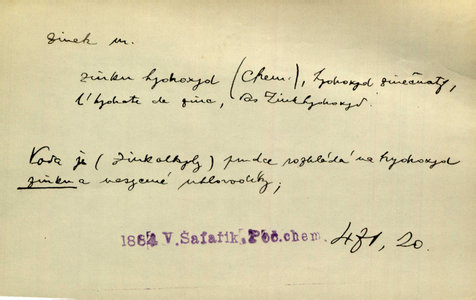 zinek m.
zinku hydroxyd (Chem.), hydroxyd zinečnatý,
l'hydrate de zinc, Das Zinkhydroxyd.
Voda je (zinkalkyly) prudce rozkládá na hydroxyd
zinku a nasycené uhlovodíky;
1884 V. Šafařík, Poč. chem. 471, 20.